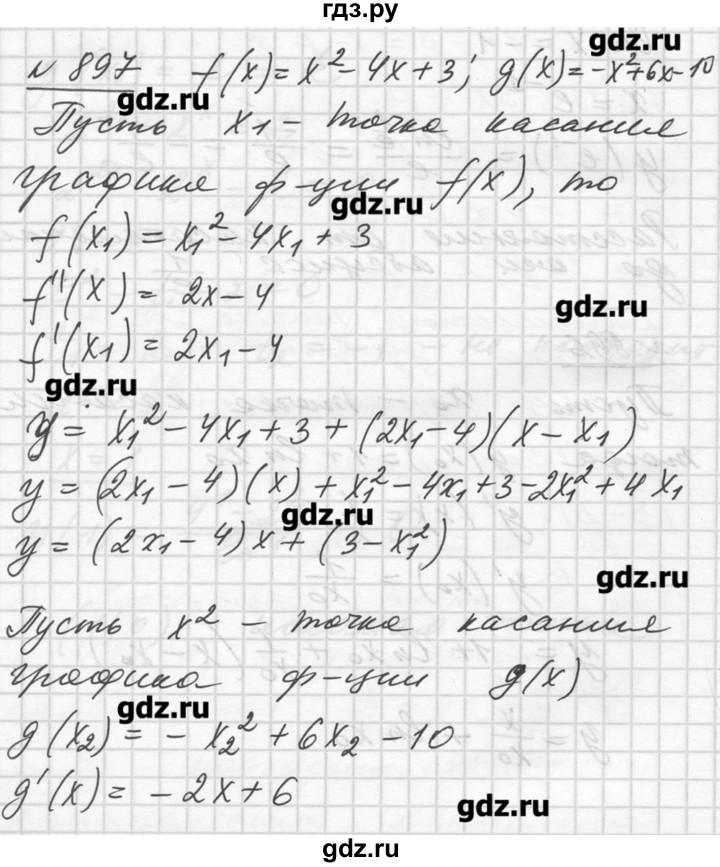 гдз.ру
gdz.ru
№ 897 f(x) = x² - 4x + 3; g(x) = -x² + 6x - 10
gdz.ru
Пусть x₁ - точка касания
графика ф-ции f(x), то
gdz.ru
f(x₁) = x₁² - 4x₁ + 3
f''(x) = 2x - 4
gdz.ru
f'(x₁) = 2x₁ - 4
gdz.ru
y = x₁² - 4x₁ + 3 + (2x₁ - 4)(x - x₁)
y = (2x₁ - 4)(x) + x₁² - 4x₁ + 3 - 2x₁² + 4x₁
gdz.ru
y = (2x₁ - 4)x + (3 - x₁²)
gdz.ru
Пусть x² - точка касания
графика ф-ции g(x)
gdz.ru
g(x₂) = - x₂² + 6x₂ - 10
g'(x) = - 2x + 6
gdz.ru
gdz.ru